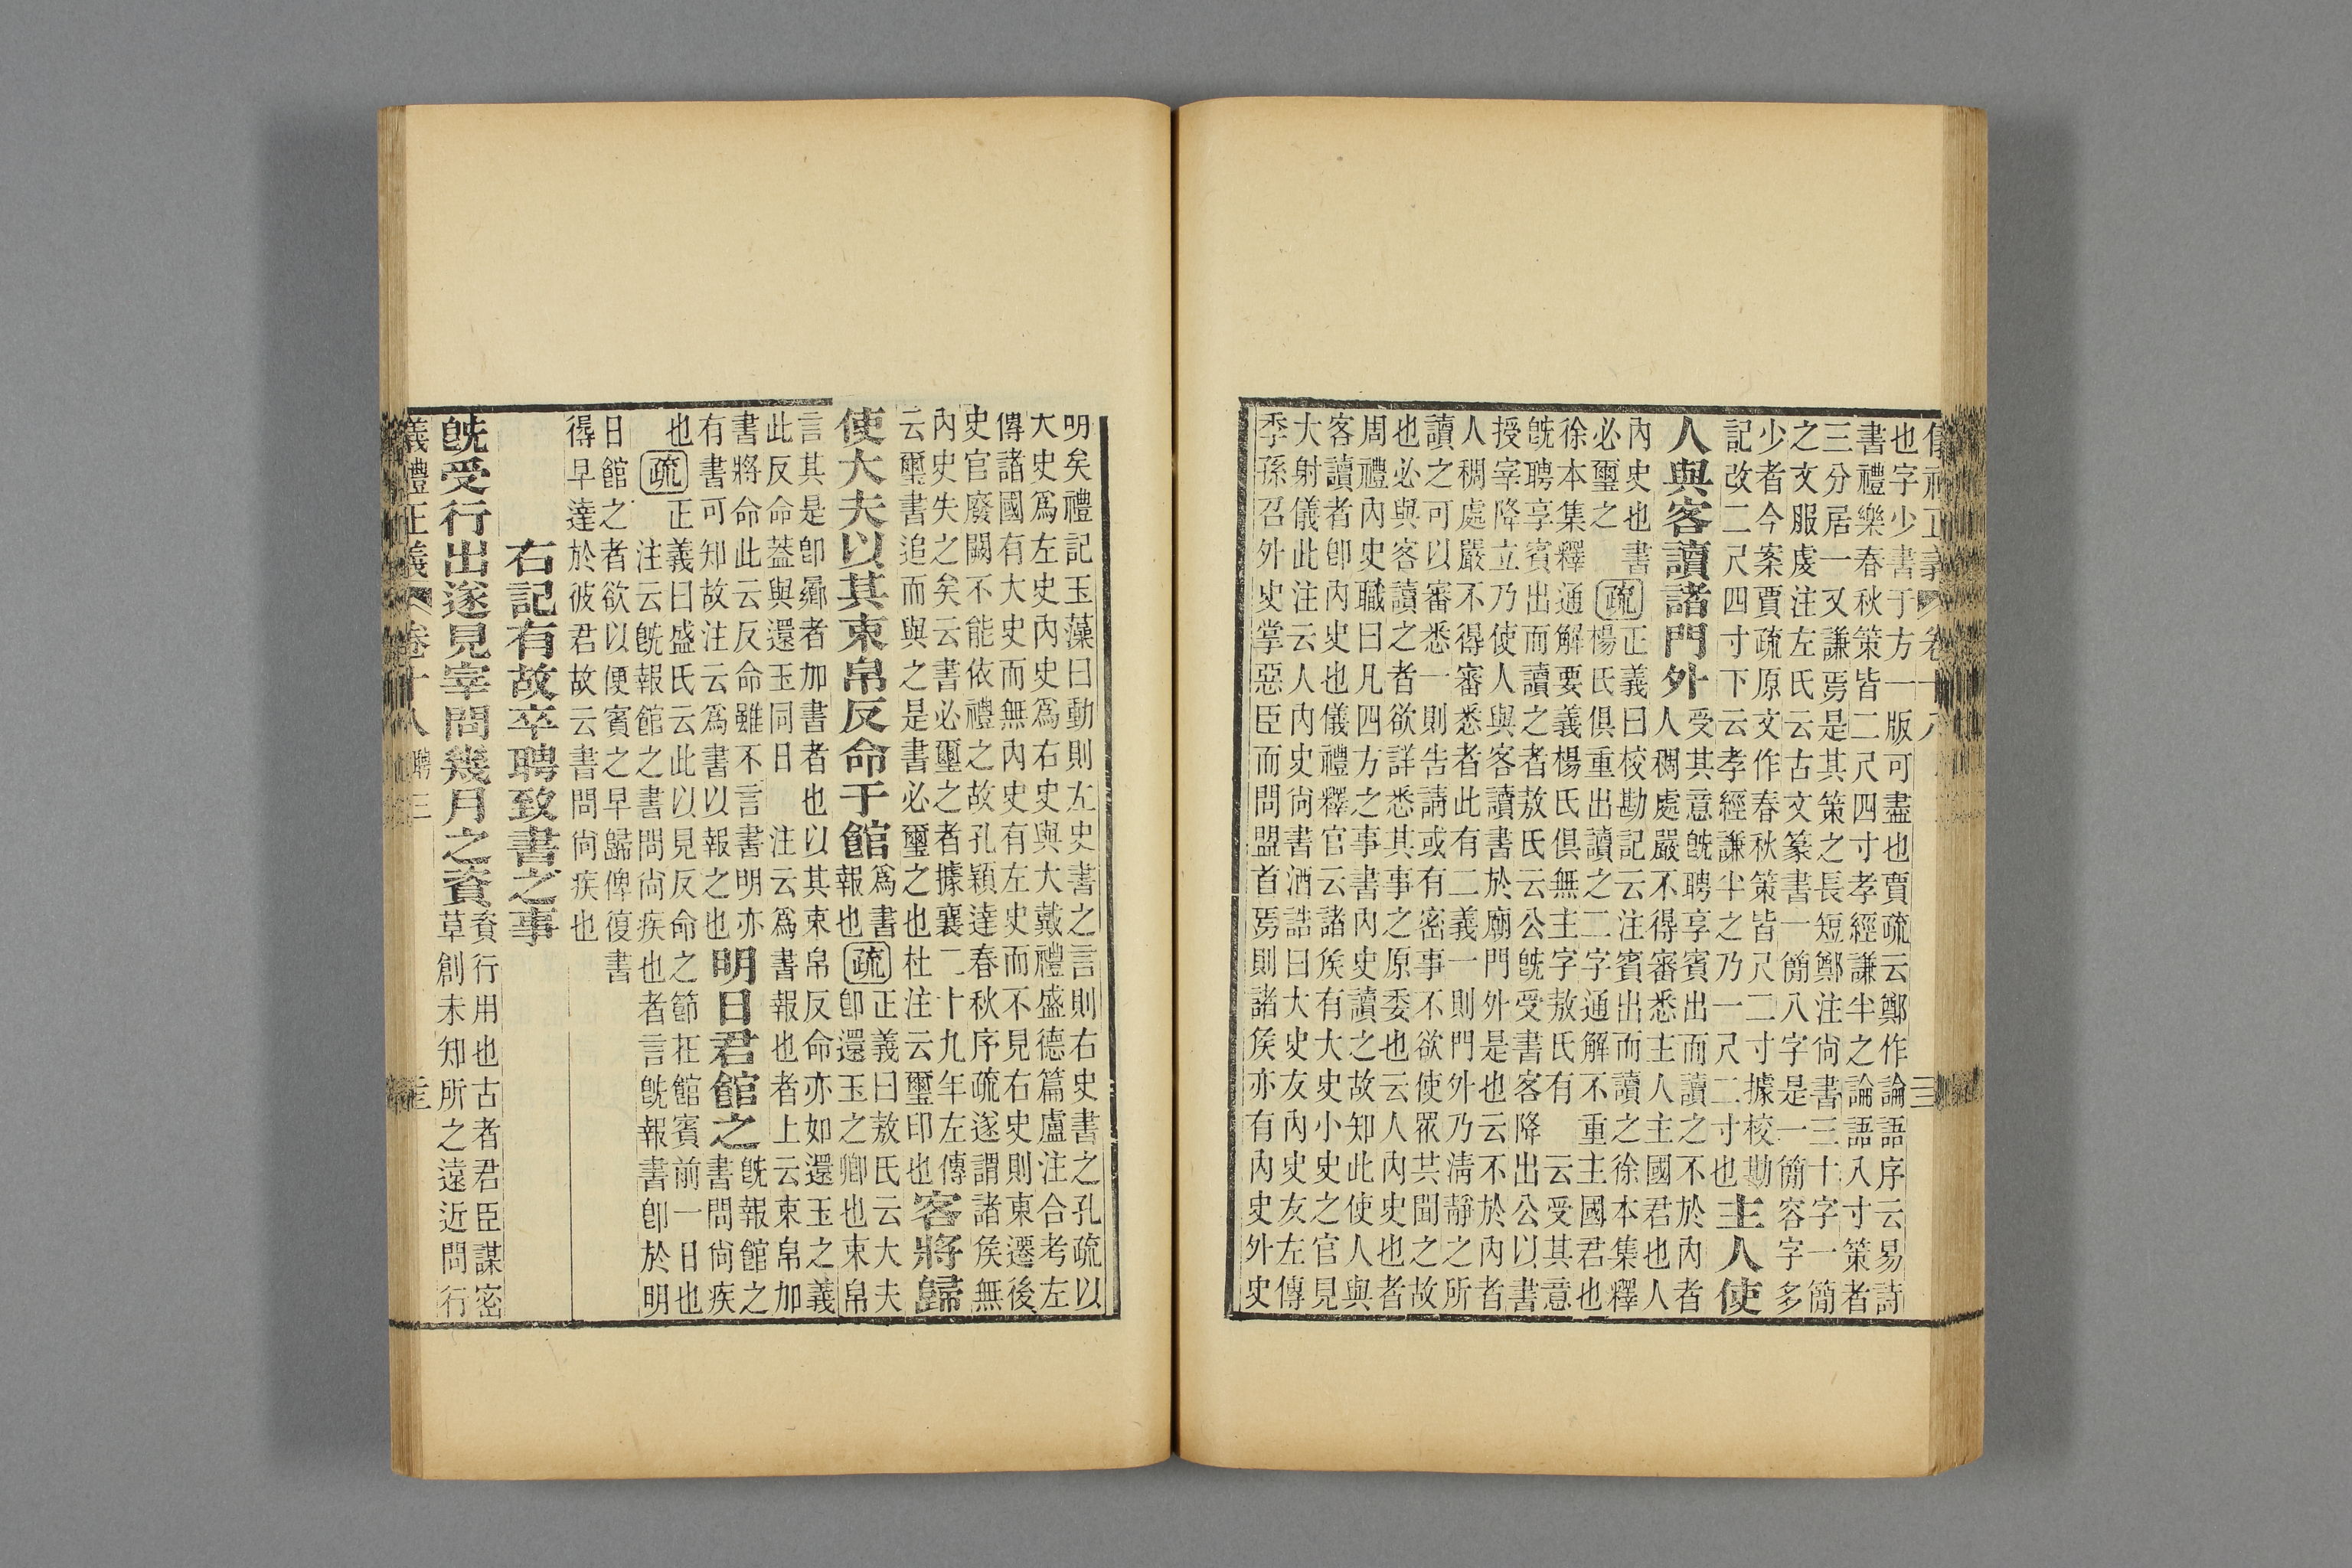 儀禮正義 卷十八 三
也字少書于方一版可盡也賈疏云鄭作論語序云易詩
書禮樂春秋策皆二尺四寸孝經謙半之論語八寸策者
三分居一又謙焉是其策之長短鄭注尙書三十字一簡
之文服虔注左氏云古文篆書一簡八字是一簡容字多
少者今案賈疏原文作春秋策皆尺二寸據校勘
記改二尺四寸下云孝經謙半之乃一尺二寸也 主人使
人與客讀諸門外 受其意旣聘享賓出而讀之不於內者
人稠處嚴不得審悉主人主國君也人
內史也書必璽之 疏 正義曰校勘記云注賓出而讀之徐本集釋
楊氏俱重出讀之二字通解不重主國君也
徐本集釋通解要義楊氏俱無主字敖氏有 云受其意
旣聘享賓出而讀之者敖氏云公旣受書客降出公以書
授宰降立乃使人與客讀書於廟門外是也云不於內者
人稠處嚴不得審悉者此有二義一則門外乃淸靜之所
讀之可以審悉一則告請或有密事不欲使眾共聞之故
也必與客讀之者欲詳悉其事之原委也云人內史也者
周禮內史職曰凡四方之事書內史讀之故知此使人與
客讀者卽內史也儀禮釋官云諸侯有大史小史之官見
大射儀此注云人內史尙書酒誥曰大史友內史友左傳
季孫召外史掌惡臣而問盟首焉則諸侯亦有內史外史
明矣禮記玉藻曰動則左史書之言則右史書之孔疏以
大史爲左史內史爲右史與大戴禮盛德篇盧注合考左
傳諸國有大史而無內史有左史而不見右史則東遷後
史官廢闕不能依禮之故孔穎達春秋序疏遂謂諸侯無
內史失之矣云書必璽之者據襄二十九年左傳
云璽書追而與之是書必璽之也杜注云璽印也 客將歸
使大夫以其束帛反命于館 爲書報也 疏 正義曰敖氏云大夫
卽還玉之卿也束帛
言其是卽曏者加書者也以其束帛反命亦如還玉之義
此反命葢與還玉同日 注云爲書報也者上云束帛加
書將命此云反命雖不言書明亦
有書可知故注云爲書以報之也 明日君館之 旣報館之
書問尙疾
也 疏 正義曰盛氏云此以見反命之節在館賓前一日也
注云旣報館之書問尙疾也者言旣報書卽於明
日館之者欲以便賓之早歸俾復書
得早達於彼君故云書問尙疾也
右記有故卒聘致書之事
旣受行出遂見宰問幾月之資 資行用也古者君臣謀密
草創未知所之遠近問行
儀禮正義 卷十八 聘三